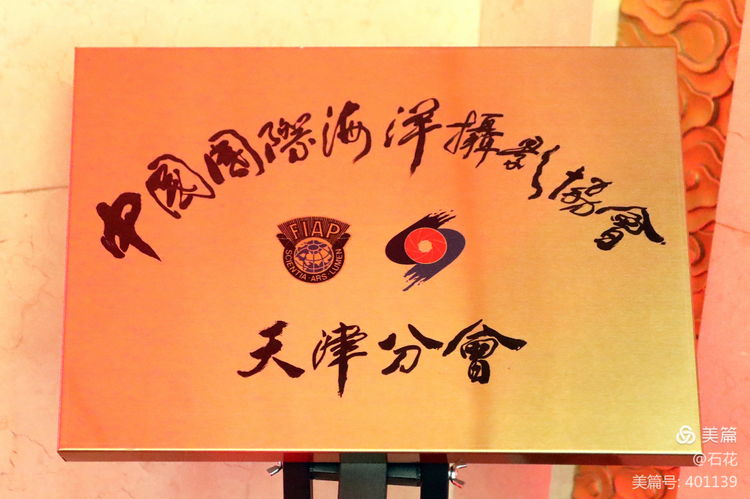 中國國際海洋攝影協會
FIAP
SCIENTIA·ARS·LUMEN
天津分會
美篇
@石花
美篇号: 401139